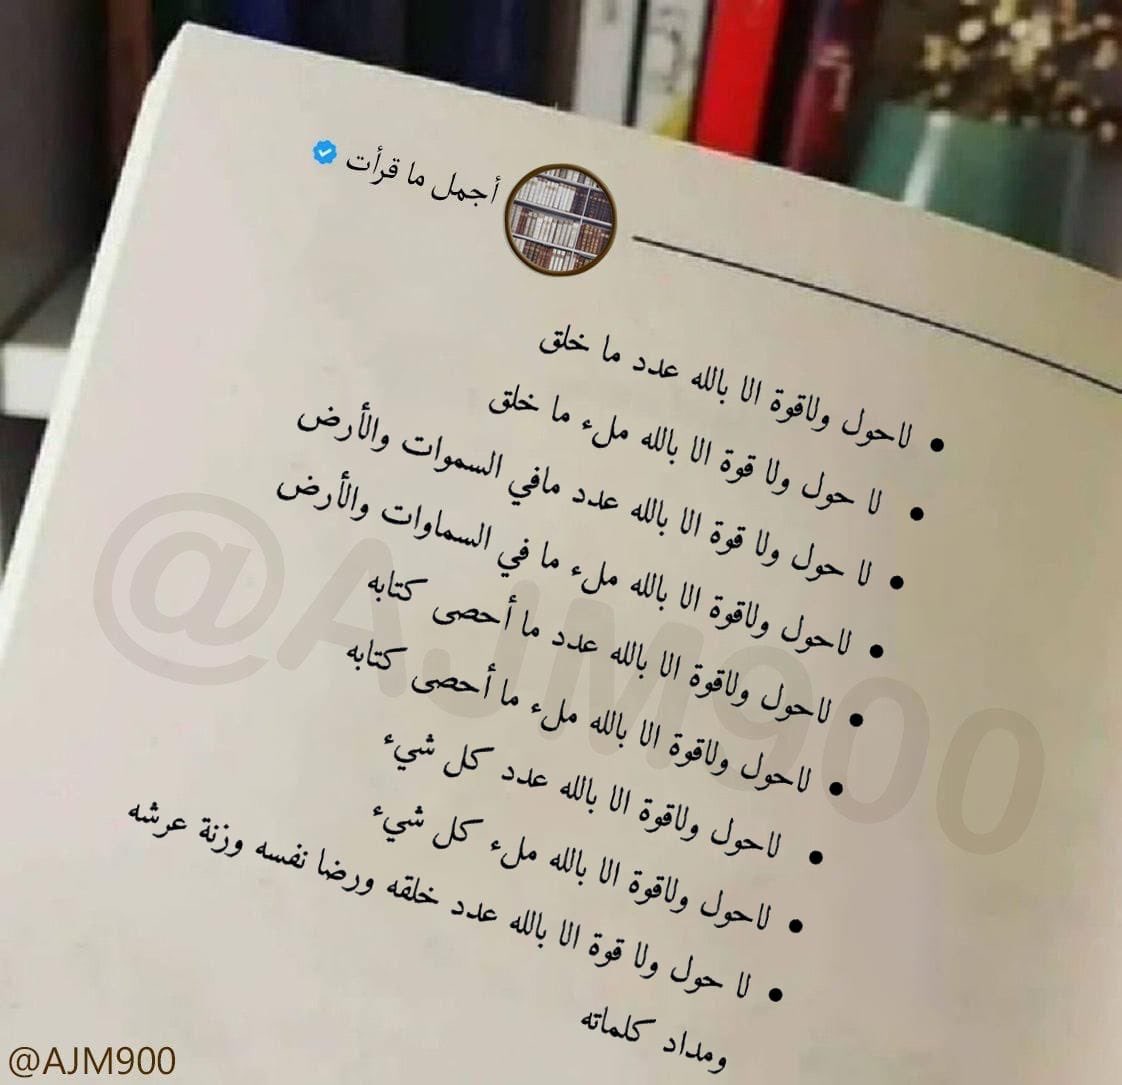 أجمل ما قرأت
لاحول ولاقوة الا بالله عدد ما خلق
لا حول ولا قوة الا بالله ملء ما خلق
لا حول ولا قوة الا بالله عدد مافي السموات والأرض
لاحول ولاقوة الا بالله ملء ما في السماوات والأرض
لاحول ولاقوة الا بالله عدد ما أحصى كتابه
لاحول ولاقوة الا بالله ملء ما أحصى كتابه
لاحول ولاقوة الا بالله عدد كل شيء
لاحول ولاقوة الا بالله ملء كل شيء
لا حول ولا قوة الا بالله عدد خلقه ورضا نفسه وزنة عرشه
ومداد كلماته
@AJM900
@AJM900